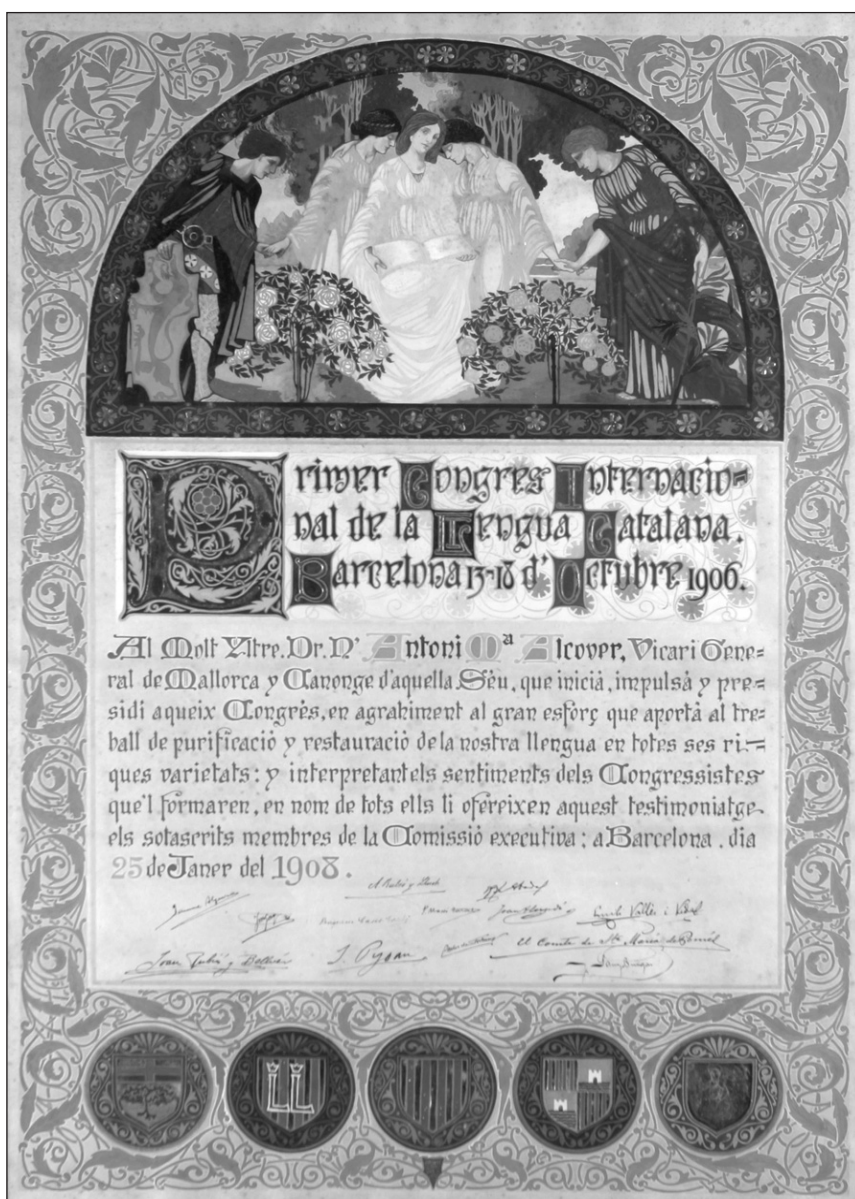 Primer Congres Internacio=
nal de la Lengua Catalana.
Barcelona 13-18 d'Octubre 1906.
Al Molt Yltre. Dr. D'. Antoni Mª Alcover, Vicari Gene=
ral de Mallorca y Canonge d'aquella Sèu, que inicià, impulsà y pre=
sidi aqueix Congrés, en agrahiment al gran esforç que aportà al tre=
ball de purificació y restauració de la nostra llengua en totes ses ri=
ques varietats: y interpretant els sentiments dels Congressistes
que'l formaren, en nom de tots ells li ofereixen aquest testimoniatge
els sotascrits membres de la Comissió executiva: a Barcelona. dia
25 de Janer del 1908.
A. Rubió y Lluch
Emili Vallès i Vidal
Joan Rubió y Bellver
J. Pijoan
El Comte de Sta María de
LL